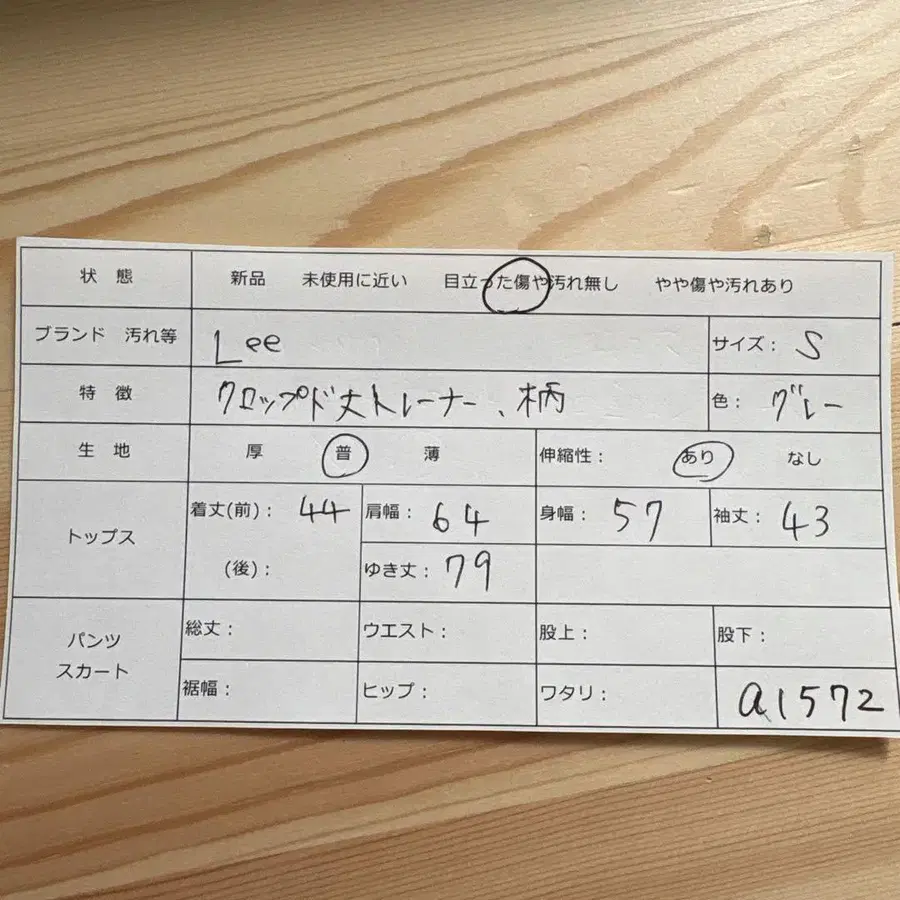 状 態 新品 未使用に近い 目立った傷や汚れ無し やや傷や汚れあり
ブランド 汚れ等 Lee サイズ： S
特 徴 クロップド丈トレーナー、柄 色： グレー
生 地 厚 普 薄 伸縮性： あり なし
トップス 着丈(前)： 44 肩幅： 64 身幅： 57 袖丈： 43
(後)： ゆき丈： 79
パンツ スカート 総丈： ウエスト： 股上： 股下：
裾幅： ヒップ： ワタリ： a1572